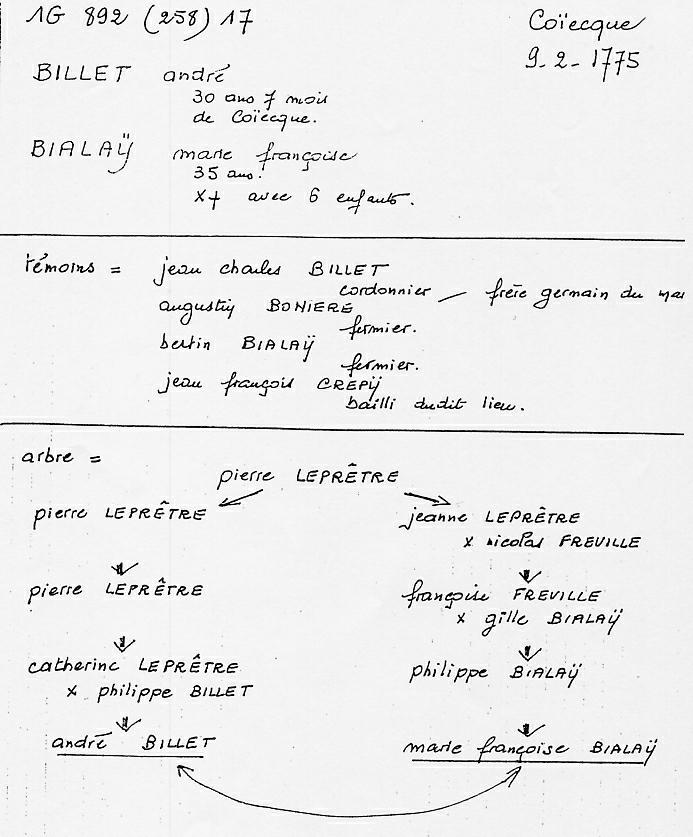 1G 892 (258) 17
Coïecque
9-2-1775
BILLET andré
30 ans 7 mois
de Coïecque.
BIALAŸ marie françoise
35 ans.
x+ avec 6 enfants.
témoins = jean charles BILLET
cordonnier — frère germain du
augustin BONIERE
fermier.
bertin BIALAŸ
fermier.
jean françois CREPŸ
bailli dudit lieu.
arbre =
pierre LEPRÊTRE
pierre LEPRÊTRE
jeanne LEPRÊTRE
x nicolas FREVILLE
pierre LEPRÊTRE
françoise FREVILLE
x gille BIALAŸ
catherine LEPRÊTRE
x philippe BILLET
philippe BIALAŸ
andré BILLET
marie françoise BIALAŸ